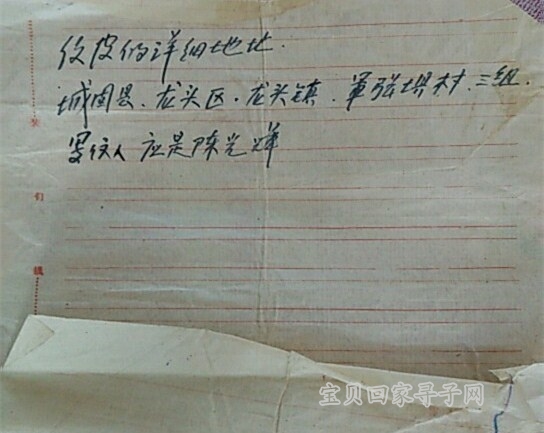 你皮的详细地址.
城固县、龙头区.龙头镇.军强堪村.三组.
写收人 应是陈光辉
装
订
线
宝贝回家寻子网